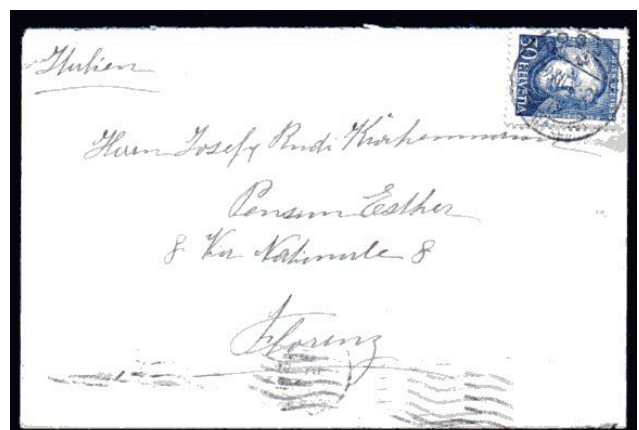 Italien
Herrn Josef Rudi Kirchenmann
Pension Esther
8 Via Nationale 8
Florenz
50 HELVETIA